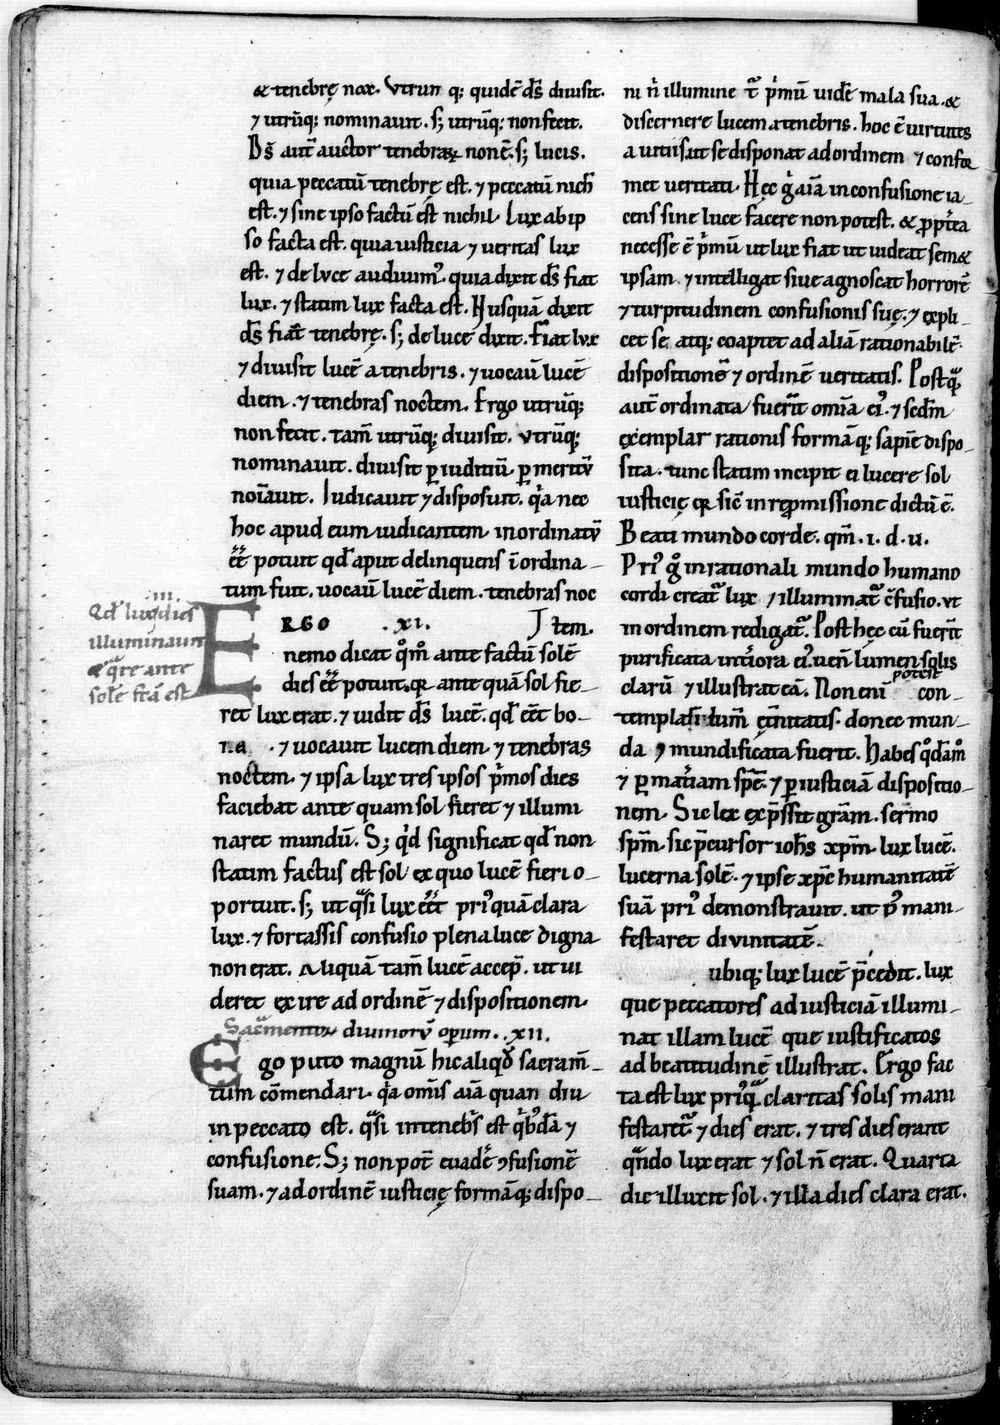 & tenebrę nox. Vtrunq; quidē d̄s diuisit.
⁊ utrūq; nominauit. s; utrūq; non fecit.
D̄s aut̄ auctor tenebraꝝ non ē. s; lucis.
quia peccatū tenebrę est. ⁊ peccatū nich̄
est. ⁊ sine ipso factū est nichil. Lux ab ip
so facta est. quia iusticia ⁊ ueritas lux
est. ⁊ de luce audiuim᷒. quia dixit d̄s fiat
lux. ⁊ statim lux facta est. Nusquā dixit
d̄s fiant tenebrę. s; de luce dixit. Fiat lux
⁊ diuisit lucē a tenebris. ⁊ uocauit lucē
diem. ⁊ tenebras noctem. Ergo utrūq;
non fecit. tam̄ utrūq; diuisit. vtrūq;
nominauit. diuisit ꝑ iuditiū ꝑ meritū
noīauit. Iudicauit ⁊ disposuit. q̓a nec
hoc apud eum iudicantem inordinatū
eē potuit qd̄ aput delinquens īordina-
tum fuit. uocauit lucē diem. tenebras noc
.III.
Qd̄ lux dies
illuminauit
& q̄re ante
solē fc̄a est
ERGO .XI. Item.
nemo dicat qm̄ ante factū solē
dies eē potuit. qr̄ ante quā sol fie-
ret lux erat. ⁊ uidit d̄s lucē. qd̄ eēt bo-
na. ⁊ uocauit lucem diem ⁊ tenebras
noctem. ⁊ ipsa lux tres ipsos p̓mos dies
faciebat ante quam sol fieret ⁊ illumi
naret mundū. S; q̓d significat qd̄ non
statim factus est sol ex quo lucē fieri o-
portuit. s; ut q̄si lux eēt pri᷒quā clara
lux. ⁊ fortassis confusio plena luce digna
non erat. Aliquā tam̄ lucē accep̄. ut ui
deret exire ad ordinē ⁊ dispositionem.
Sacramentū diuinorū operum. .XII.
Ego puto magnū hic aliqd̄ sacram̄-
tum cōmendari. q̓a om̄is aīa quandiu
in peccato est. q̄si in tenebs̄ est q̓bdā ⁊
confusione. S; non pot̄ euadē ꝯfusionē
suam. ⁊ ad ordinē iusticię formāq; dispo-
ni n̄ illumine t̄ p̓mū uidē mala sua. &
discernere lucem a tenebris. hoc ē uirtutes
a uitiis ut se disponat ad ordinem ⁊ confor
met ueritati. Hęc g̓ aīa in confusione ia-
cens sine luce facere non potest. & ꝓpt̄ea
necesse ē p̓mū ut lux fiat ut uideat sem&
ipsam. ⁊ intelligat siue agnoscat horrorē
⁊ turpitudinem confusionis suę. ⁊ expli-
cet se. atq; coaptet ad aliā rationabilē
dispositionē ⁊ ordinē ueritatis. Postq̄
aut̄ ordinata fuerīt om̄ia ei᷒. ⁊ scd̄m
exemplar rationis formāq; sapiē dispo-
sita. tunc statim incipit ei lucere sol
iusticię qr̄ sic̄ in repromissione dictū ē.
Beati mundo corde. qm̄. i. d. u.
Pri᷒ g̊ in rationali mundo humano
cordi creat̄ lux ⁊ illuminat̄ c̄fusio. vt
in ordinem redigat̄. Post hęc cū fuerīt
purificata int̓iora ei᷒. uen̄ lumen solis
clarū ⁊ illustrat eā. Non eni potest con-
templari lum̄ ęt̄nitatis. donec mun-
da ꝯ mundificata fuerit. Habes q̊dām̊
⁊ ꝑ mat̓iam spē. ⁊ ꝑ iusticiā dispositio-
nem. Sic lex exp̄ssit gr̄am. sermo
spm̄. sic p̄cursor ioh̄s xp̄m. lux lucē.
lucerna solē. ⁊ ipse xp̄c humanitatē
suā pri᷒ demonstrauit. ut p᷒ mani-
festaret diuinitatē.
ubiq; lux lucē p̄cedit. lux
que peccatores ad iusticiā illumi-
nat illam lucē que iustificatos
ad beatitudinē illustrat. Ergo fac
ta est lux pri᷒q̄ claritas solis mani
festaret̄. ⁊ dies erat. ⁊ tres dies erant
q̄ndo lux erat ⁊ sol n̄ erat. Quarta
die illuxit sol. ⁊ illa dies clara erat.